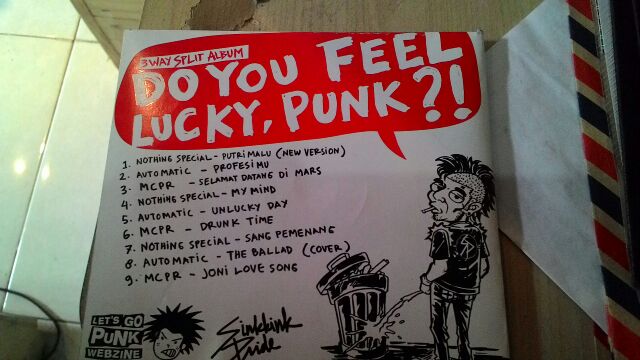 3 WAY SPLIT ALBUM
DO YOU FEEL
LUCKY, PUNK?!
1. NOTHING SPECIAL - PUTRI MALU (NEW VERSION)
2. AUTOMATIC - PROFESIMU
3. MCPR - SELAMAT DATANG DI MARS
4. NOTHING SPECIAL - MY MIND
5. AUTOMATIC - UNLUCKY DAY
6. MCPR - DRUNK TIME
7. NOTHING SPECIAL - SANG PEMENANG
8. AUTOMATIC - THE BALLAD (COVER)
9. MCPR - JONI LOVE SONG
LET'S GO
PUNK
WEBZINE
Pride